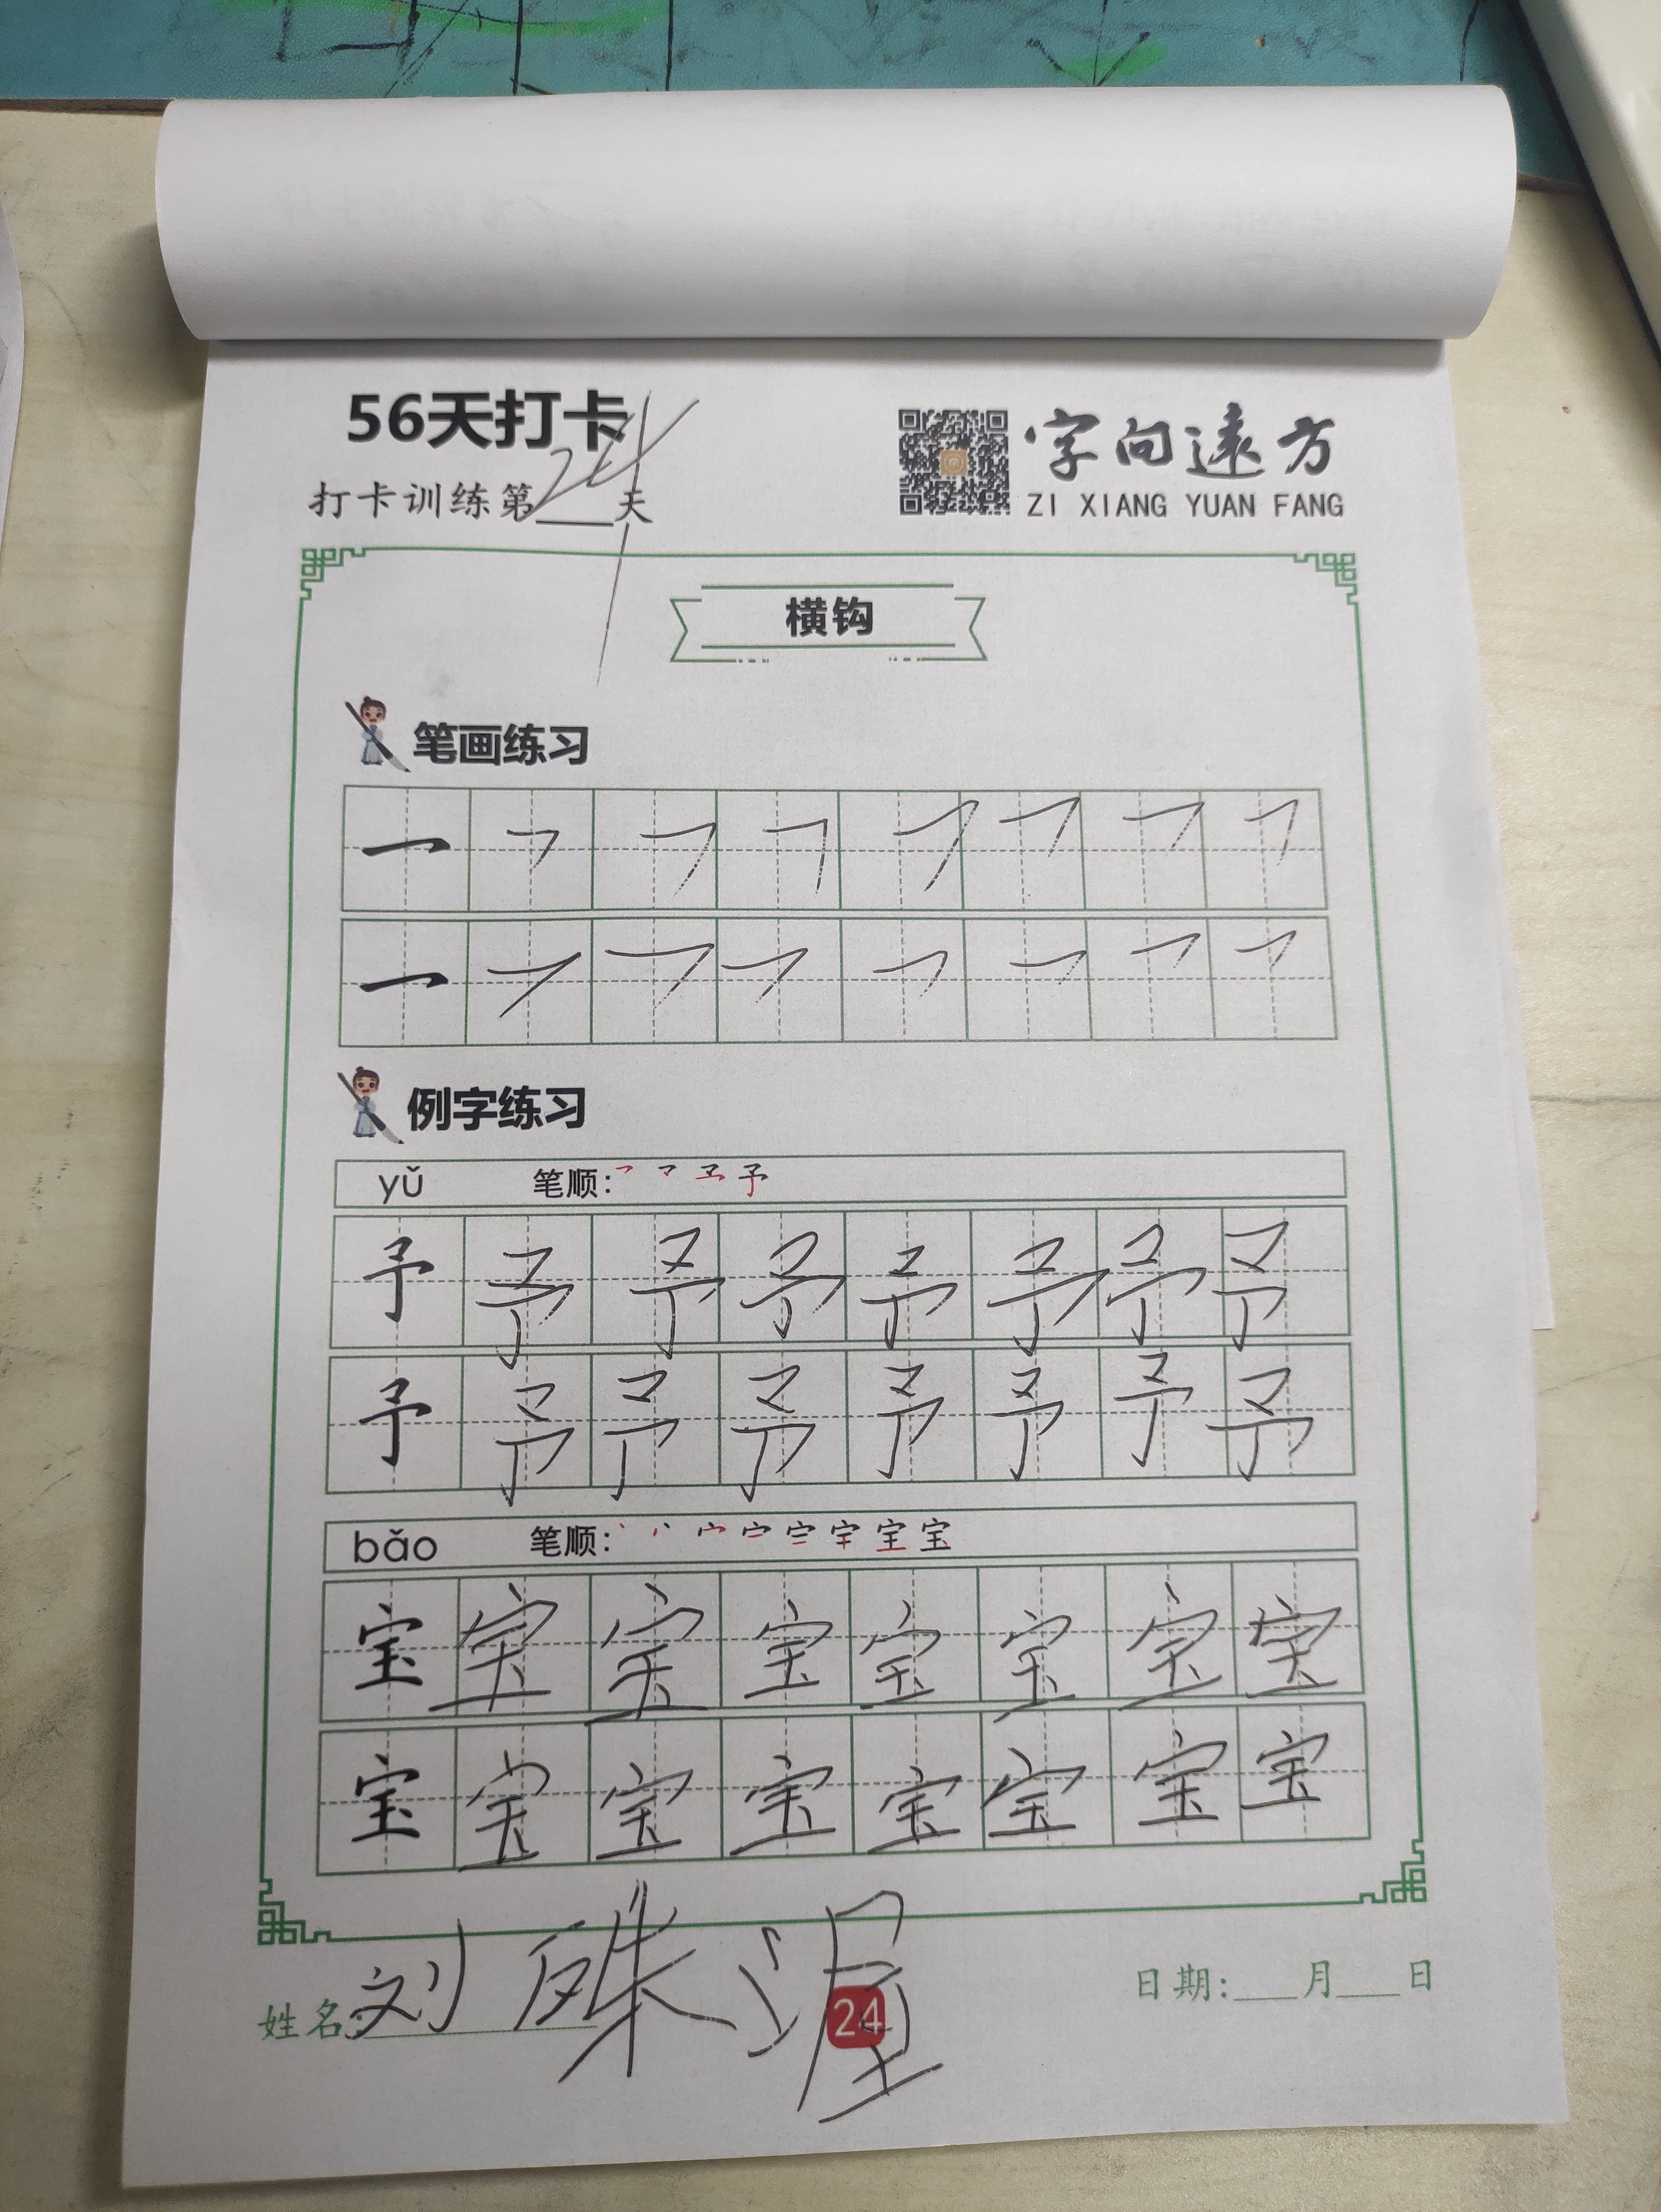 56天打卡
字向遠方
打卡训练第24天
ZI XIANG YUAN FANG
横钩
笔画练习
例字练习
yǔ 笔顺:
予 予 予 予 予 予 予 予
予 予 予 予 予 予 予 予
bǎo 笔顺:
宝 宝 宝 宝 宝 宝 宝 宝
宝 宝 宝 宝 宝 宝 宝 宝
姓名: 刘
日期:___月___日
24